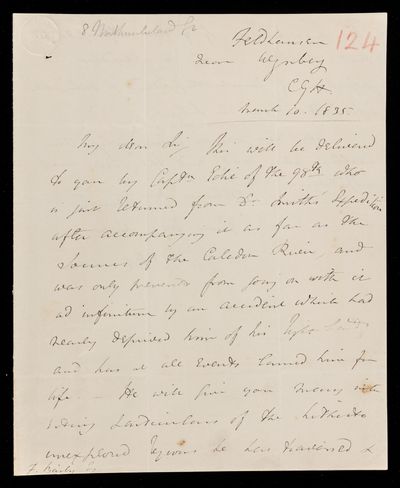 8 Northumberland St
124
Feldhausen
near Wynberg
CGH
March 10. 1835
My dear Sir, This will be delivered
to you by Captn Edie of the 98th who
is just returned from Dr Smith's Expedition
after accompanying it as far as the
Sources of the Caledon River, and
was only prevented from going on with it
ad infinitum by an accident which had
nearly deprived him of his
and has at all Events lamed him for
life. – He will give you many
of the hitherto
unexplored regions he has traversed &
F. Baily Esq